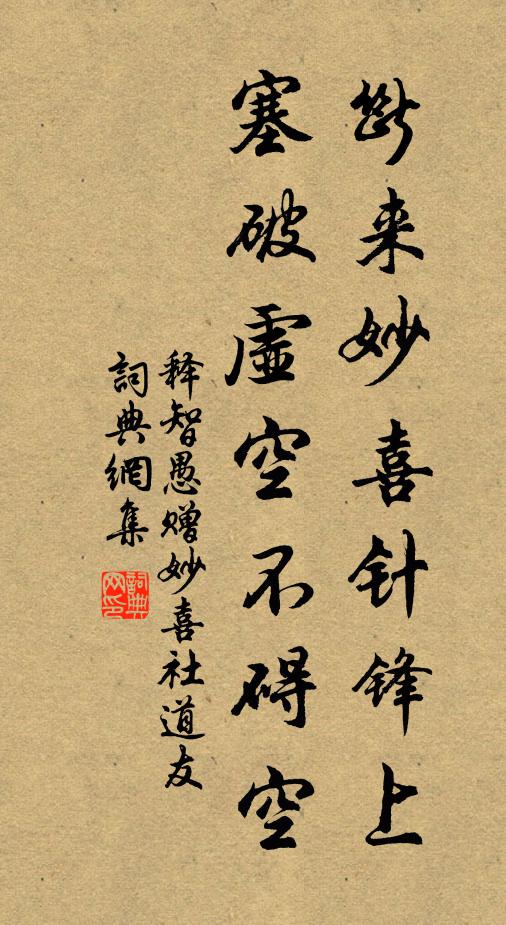 断来妙喜针锋上
塞破虚空不碍空
释智愚赠妙喜社道友
詞典網集
詞典网印